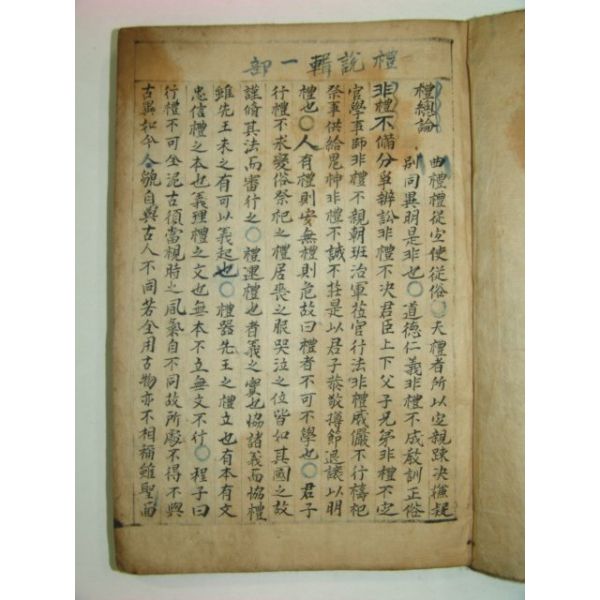 禮說輯一部
禮總論
曲禮禮從宜使從俗○夫禮者所以定親疎决嫌疑
別同異明是非也○道德仁義非禮不成敎訓正俗
非禮不備分爭辨訟非禮不决君臣上下父子兄弟非禮不定
官學事師非禮不親朝班治軍莅官行法非禮威嚴不行禱祀
祭事供給鬼神非禮不誠不莊是以君子恭敬撙節退讓以明
禮也○人有禮則安無禮則危故曰禮者不可不學也○君子
行禮不求變俗祭祀之禮居喪之服哭泣之位皆如其國之故
謹脩其法而審行之○禮運禮也者義之實也協諸義而協禮
雖先王未之有可以義起也○禮器先王之禮立也有本有文
忠信禮之本也義理禮之文也無本不立無文不行○程子曰
行禮不可全泥古須當視時之風氣自不同故所處不得不與
古異如今人貌自與古人不同若全用古物亦不相稱雖聖而